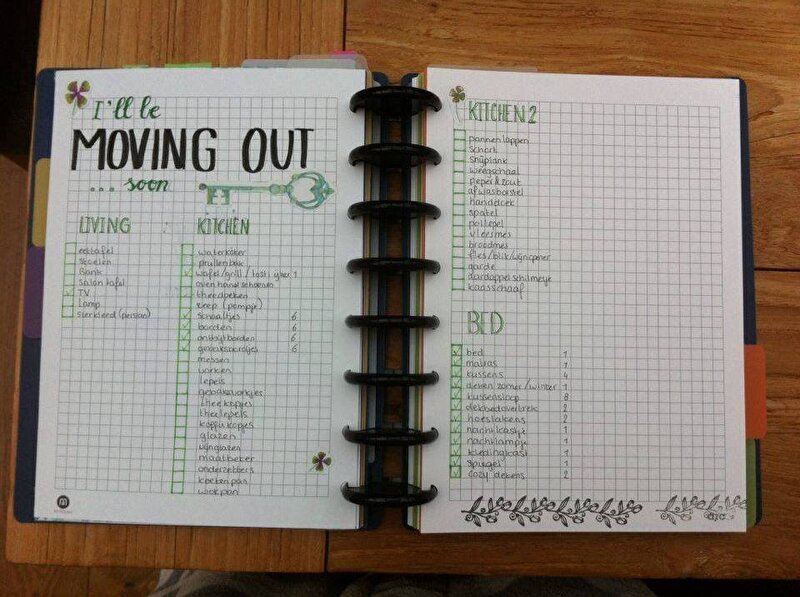 I'll be
MOVING OUT
... soon
LIVING
eettafel
stoelen
Bank
Salon tafel
TV
Lamp
Sierkleed (perzian)
KITCHEN
waterkoker
prullenbak
wafel/grill/tosti ijzer 1
oven handschoenen
theedoeken
zeep (pompje)
schaaltjes 6
borden 6
ontbijtborden 6
gebaksbordjes 6
messen
vorken
lepels
gebaksvorkjes
theekopjes
theelepels
koffiekopjes
glazen
wijnglazen
maatbeker
onderzetters
koekenpan
wokpan
KITCHEN 2
pannenlappen
schort
snijplank
weegschaal
peper & zout
afwasborstel
handdoek
spatel
pollepel
vleesmes
broodmes
fles/blik/wijnopener
garde
aardappelschilmesje
kaasschaaf
BED
bed 1
matras 1
kussens 4
deken zomer/winter 1
kussensloop 8
dekbedovertrek 2
hoeslakens 2
nachtkastje 1
nachtlampje 1
kledingkast 1
spiegel 1
cozy dekens 2